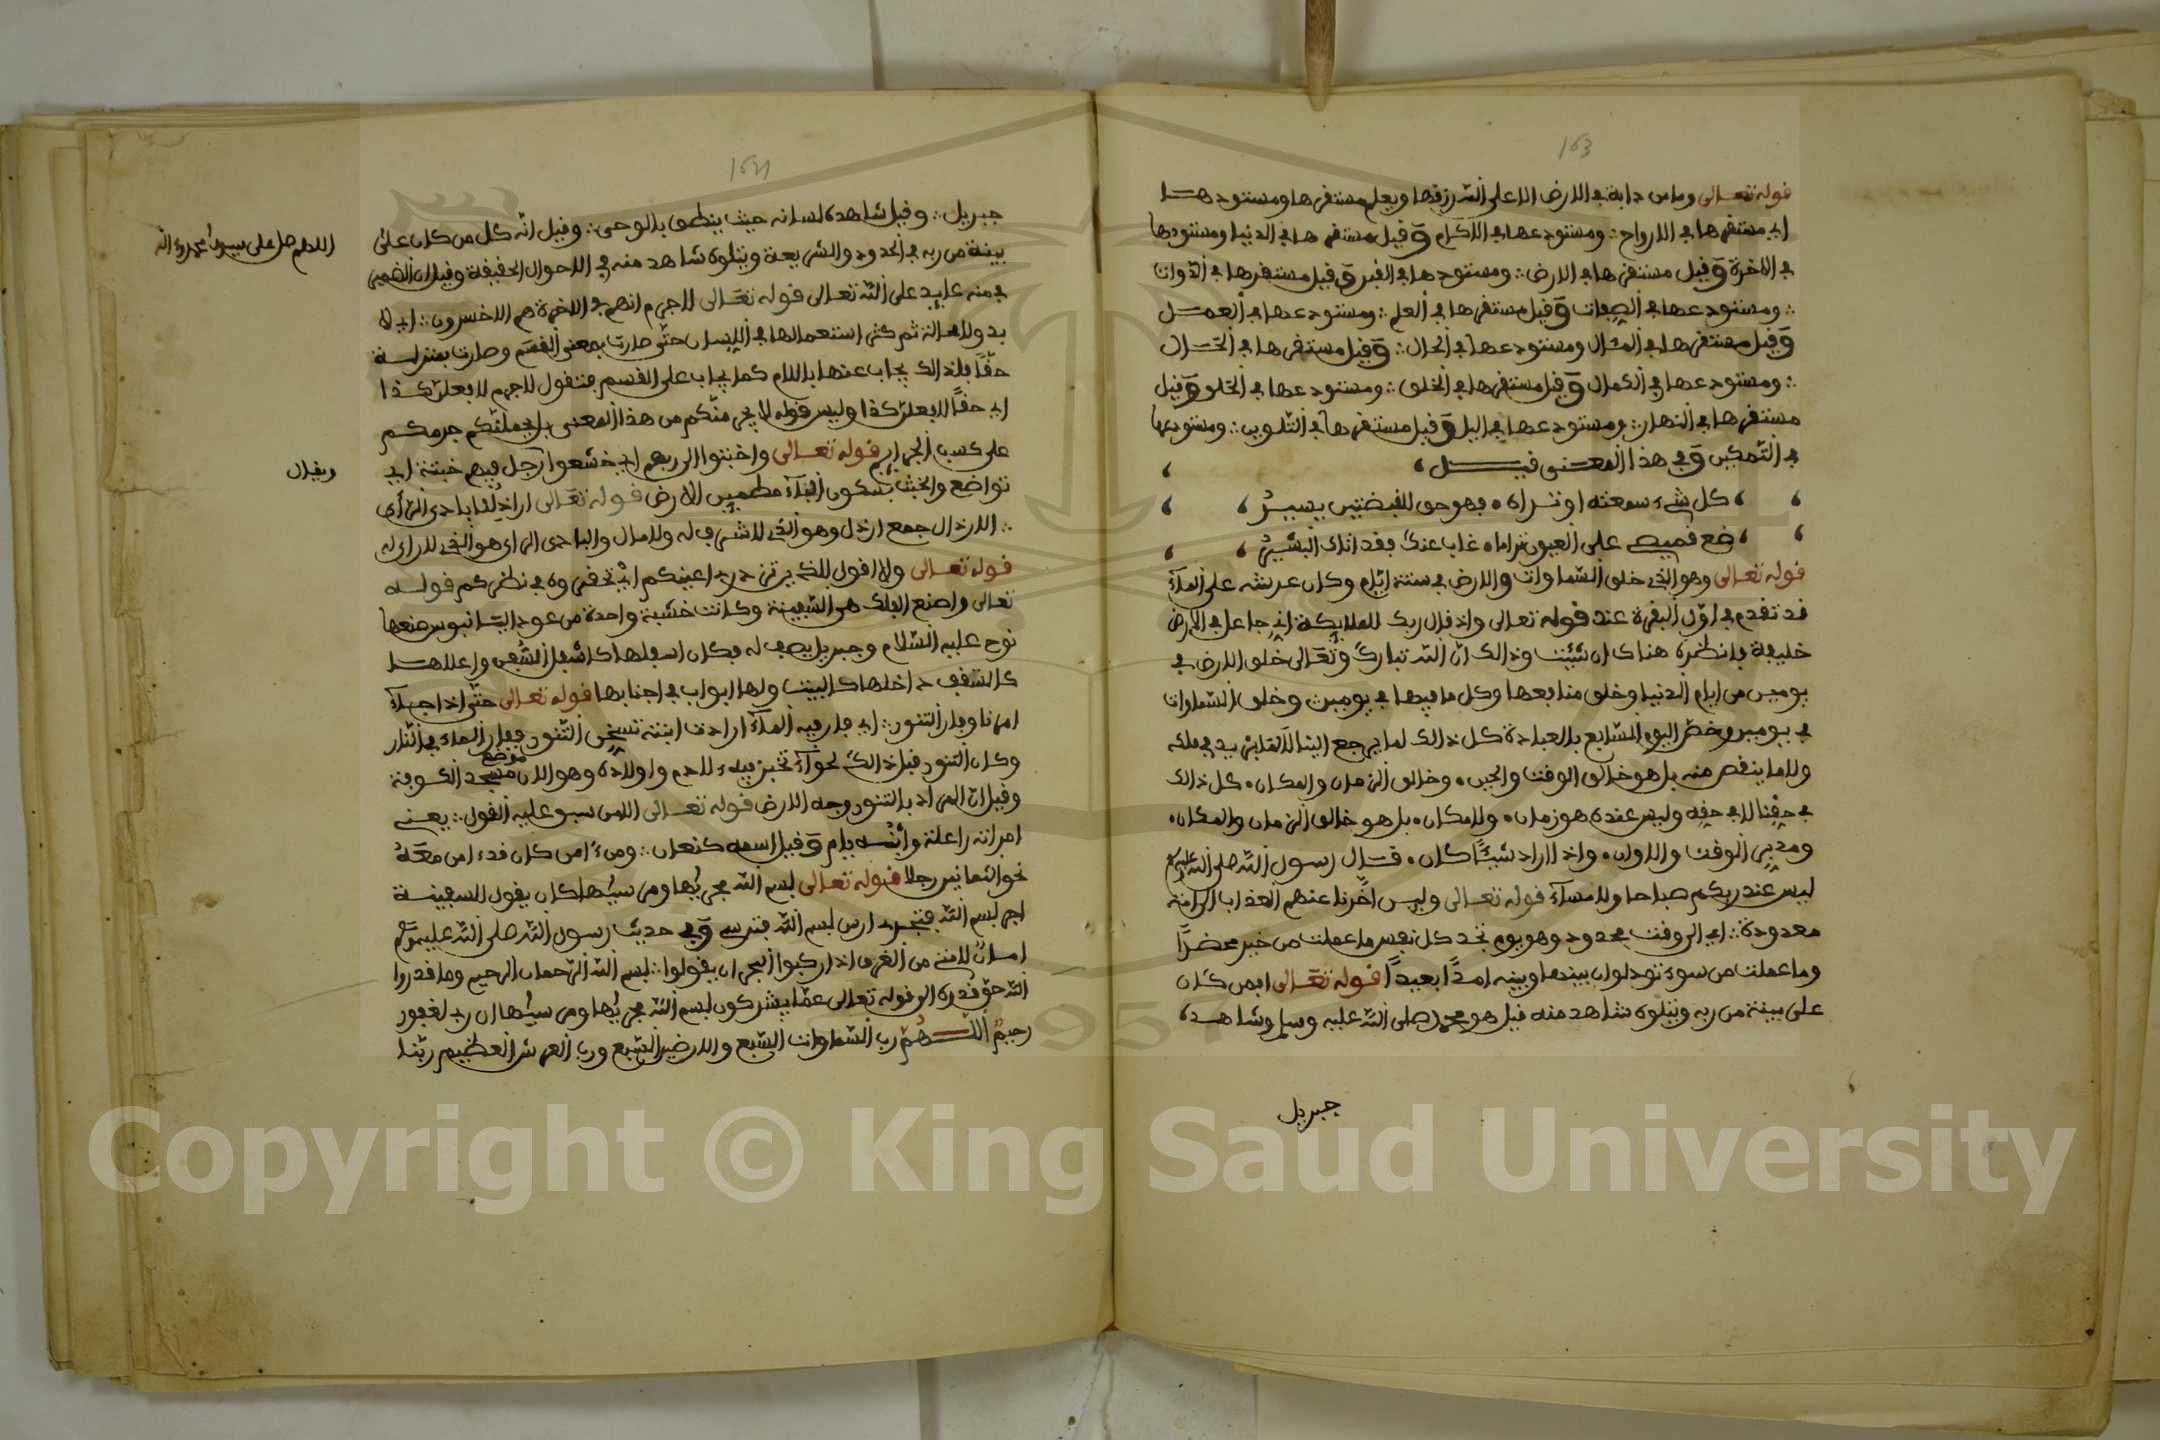 163
قوله تعالى وما من دابة في الارض الا على الله رزقها ويعلم مستقرها ومستودعها
اي مستقرها في الارواح ∴ ومستودعها في الاكرام وقيل مستقرها في الدنيا ومستودعها
في الاخرة وقيل مستقرها في الارض ∴ ومستودعها في القبر وقيل مستقرها في الذوات
∴ ومستودعها في الصفات وقيل مستقرها في العلم ∴ ومستودعها في العمل
وقيل مستقرها في المثال ومستودعها في الحال ∴ وقيل مستقرها في
∴ ومستودعها في الكمال وقيل مستقرها في الخلق ∴ ومستودعها في الخلق وقيل
مستقرها في النهار ∴ ومستودعها في اليل وقيل مستقرها في التلوين ∴ ومستودعها
في التمكين وفي هذا المعنى قيل
كل شيء سمعته او تراه فهو حق للقبضتين يسير
ضع قميصي على العيون تراما غاب عنك فقد اتاك البشير
قوله تعالى وهو الذي خلق السماوات والارض في ستة ايام وكان عرشه على الماء
قد تقدم في اول البقرة عند قوله تعالى واذ قال ربك للملايكة اني جاعل في الارض
خليفة فانظره هناك ان شئت وذالك ان الله تبارك وتعالى خلق الارض في
يومين من ايام الدنيا وخلق منافعها وكل ما فيها في يومين وخلق السماوات
في يومين وخص اليوم السابع بالعبادة كل ذالك لما يرجع الينا لا لفايدة في ملكه
ولا ما ينقص منه بل هو خالق الوقت والحين وخالق الزمان والمكان كل ذالك
في حقنا لا في حقه وليس عنده هو زمان ولا مكان بل هو خالق الزمان والمكان
ومدبر الوقت والاوان واذا اراد شيئا كان قال رسول الله صلى الله عليه وسلم
ليس عند ربكم صباحا ولا مساء قوله تعالى ولين اخرنا عنهم العذاب الى امة
معدودة ∴ اي الى وقت محدود وهو يوم تجد كل نفس ما عملت من خير محضرا
وما عملت من سوء تود لو ان بينها وبينه امدا بعيدا قوله تعالى افمن كان
على بينة من ربه ويتلوه شاهد منه قيل هو محمد صلى الله عليه وسلم وشاهده
جبريل
164
جبريل ∴ وقيل شاهده لسانه حيث ينطق بالوحي ∴ وقيل انه كل من كان على
بينة من ربه في الحدود والشريعة ويتلوه شاهد منه في الاحوال الحقيقة وقيل ان الضمير
في منه عايد على الله تعالى قوله تعالى لا جرم انهم في الاخرة هم الاخسرون ∴ اي لا
بد ولا محالة ثم كثر استعمالها في اللسان حتى صارت بمعنى القسم وصارت بمنزلة
حقا فلذالك يجاب عنها باللام كما يجاب على القسم فتقول لا جرم لا بعلن كذا
اي حقا لا بعلن كذا وليس قوله لا يجرمنكم من هذا المعنى بل يحملنكم جرمكم
على كسب الجرايم قوله تعالى واخبتوا الى ربهم اي خشعوا لكل فيهم خبتة اي
تواضع والخبت بسكون الباء مطمين الارض قوله تعالى اراذلنا بادي الرأي
∴ الارذال جمع ارذل وهو الذي لا شرف له ولا مال والبادي الراي هو الذي لا راي له
قوله تعالى ولا اقول للذين تزدري اعينكم اي تحقروه في نظركم قوله
تعالى واصنع الفلك هي السفينة وكانت خشبة واحدة من عود الابنوس صنعها
نوح عليه السلام وجبريل يصف له فكان اسفلها كاسفل السفن واعلاها
كالسقف داخلها كالبيت ولها ابواب في اجنابها قوله تعالى حتى اذا جاء
امرنا وفار التنور ∴ اي فار فيه الماء ارادت ابنته تسخن التنور ففار الماء في النار
وكان التنور قبل ذالك لحواء تخبز فيه لادم واولاده وهو الان موضع مسجد الكوفة
وقيل ان المراد بالتنور وجه الارض قوله تعالى الا من سبق عليه القول ∴ يعني
امراته راعلة وابنه يام وقيل اسمه كنعان ∴ ومن ءامن كان قدءامن معه
نحو الثمانين رجلا قوله تعالى بسم الله مجريها ومرسيها كان يقول للسفينة
اجر بسم الله فتجري ارس بسم الله فترسي وفي حديث رسول الله صلى الله عليه وسلم
امان لامتي من الغرق اذا ركبوا البحر ان يقولوا ∴ بسم الله الرحمان الرحيم وما قدروا
الله حق قدره الى قوله تعالى عما يشركون بسم الله مجريها ومرسيها ان ربي لغفور
رحيم اللهم رب السماوات السبع والارضين السبع ورب العرش العظيم ربنا
اللهم صل على سيدنا محمد وءاله
ويقال
Copyright © King Saud University
1957